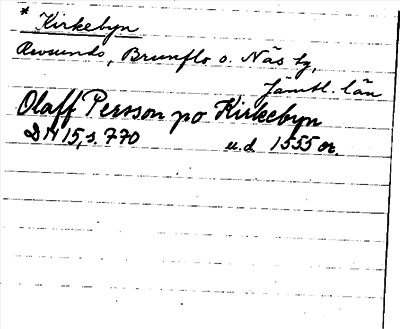 * Kirkebyn
Revsunds, Brunflo o. Näs tg,
Jämtl. län
Olaff Persson po Kirkebyn
DN 15, s. 770 u.d 1555 or.